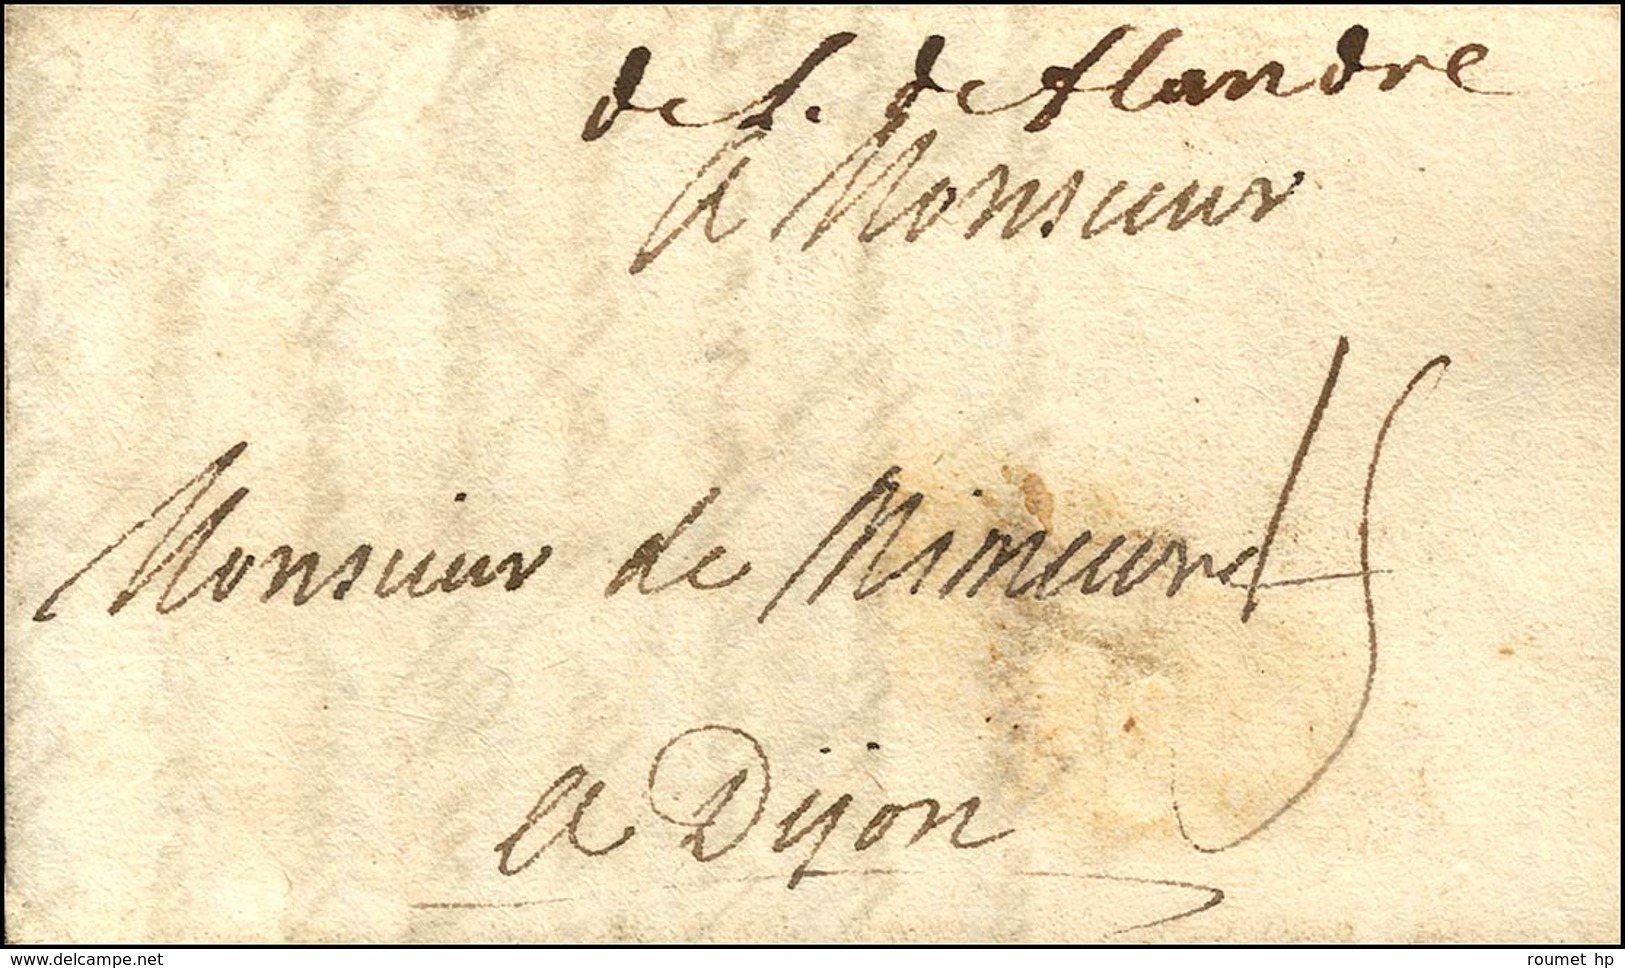 de L. de flandre
A Monsieur
Monsieur de Mimeure 15
a Dijon
www.delcampe.net
roumet hp